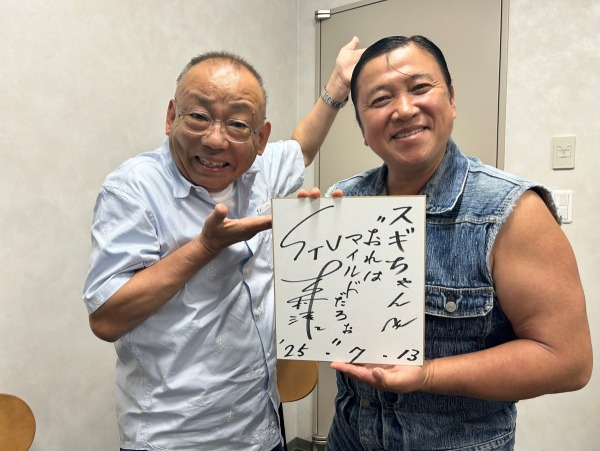 スギちゃん
"おれは
マイルドだろぉ"
STV
'25 - 7 - 13